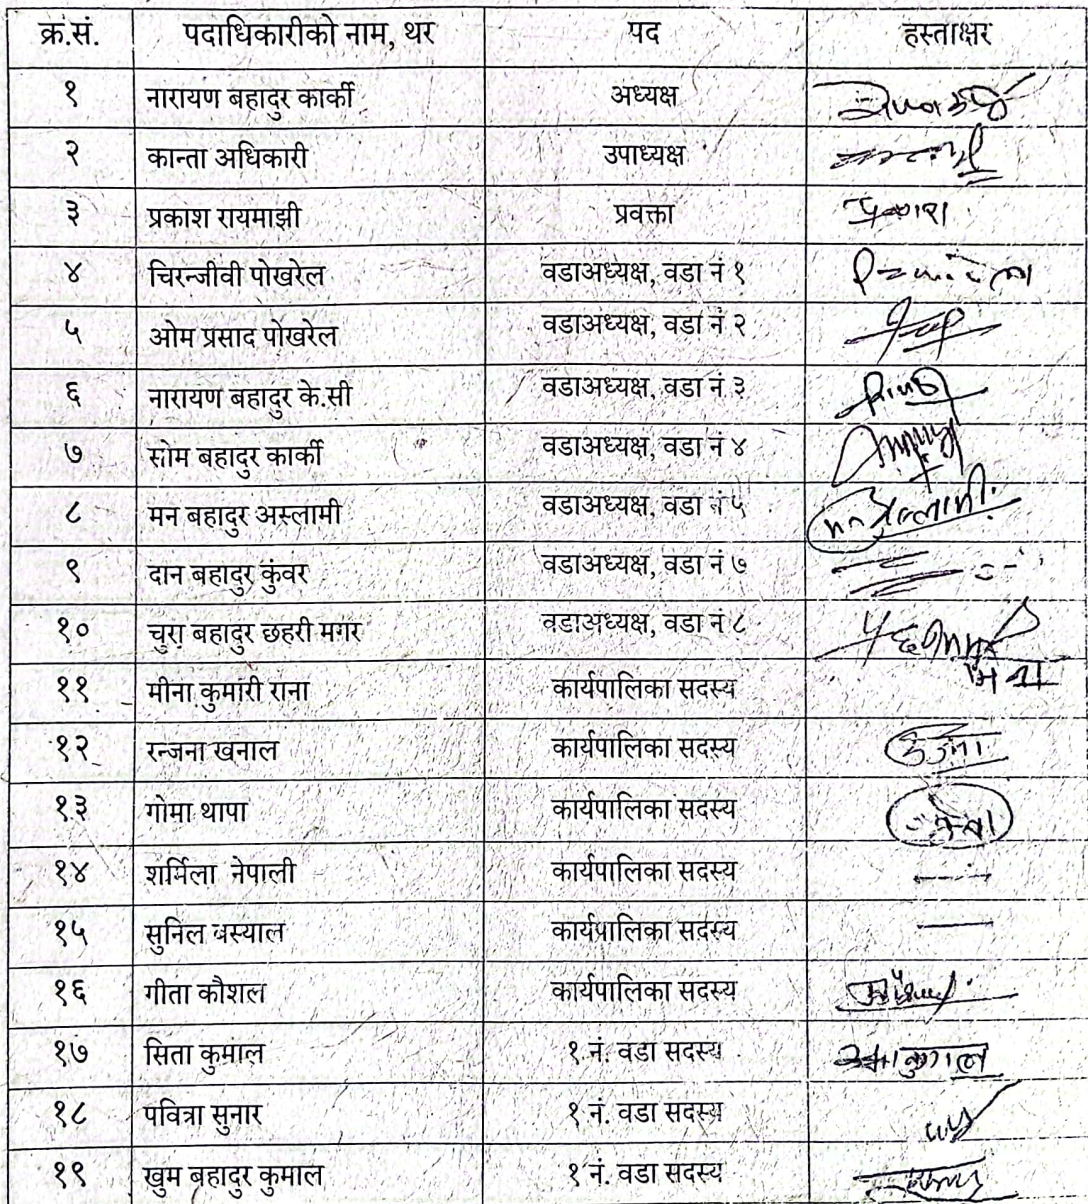 क्र.सं. पदाधिकारीको नाम, थर पद हस्ताक्षर
१ नारायण बहादुर कार्की अध्यक्ष
२ कान्ता अधिकारी उपाध्यक्ष
३ प्रकाश रायमाझी प्रवक्ता प्रकाश
४ चिरन्जीवी पोखरेल वडाअध्यक्ष, वडा नं १
५ ओम प्रसाद पोखरेल वडाअध्यक्ष, वडा नं २
६ नारायण बहादुर के.सी वडाअध्यक्ष, वडा नं ३
७ सोम बहादुर कार्की वडाअध्यक्ष, वडा नं ४
८ मन बहादुर अस्लामी वडाअध्यक्ष, वडा नं ५
९ दान बहादुर कुंवर वडाअध्यक्ष, वडा नं ७
१० चुरा बहादुर छहरी मगर वडाअध्यक्ष, वडा नं ८
११ मीना कुमारी राना कार्यपालिका सदस्य
१२ रन्जना खनाल कार्यपालिका सदस्य
१३ गोमा थापा कार्यपालिका सदस्य
१४ शर्मिला नेपाली कार्यपालिका सदस्य
१५ सुनिल बस्याल कार्यपालिका सदस्य
१६ गीता कौशल कार्यपालिका सदस्य
१७ सिता कुमाल १ नं. वडा सदस्य
१८ पवित्रा सुनार १ नं. वडा सदस्य
१९ खुम बहादुर कुमाल १ नं. वडा सदस्य